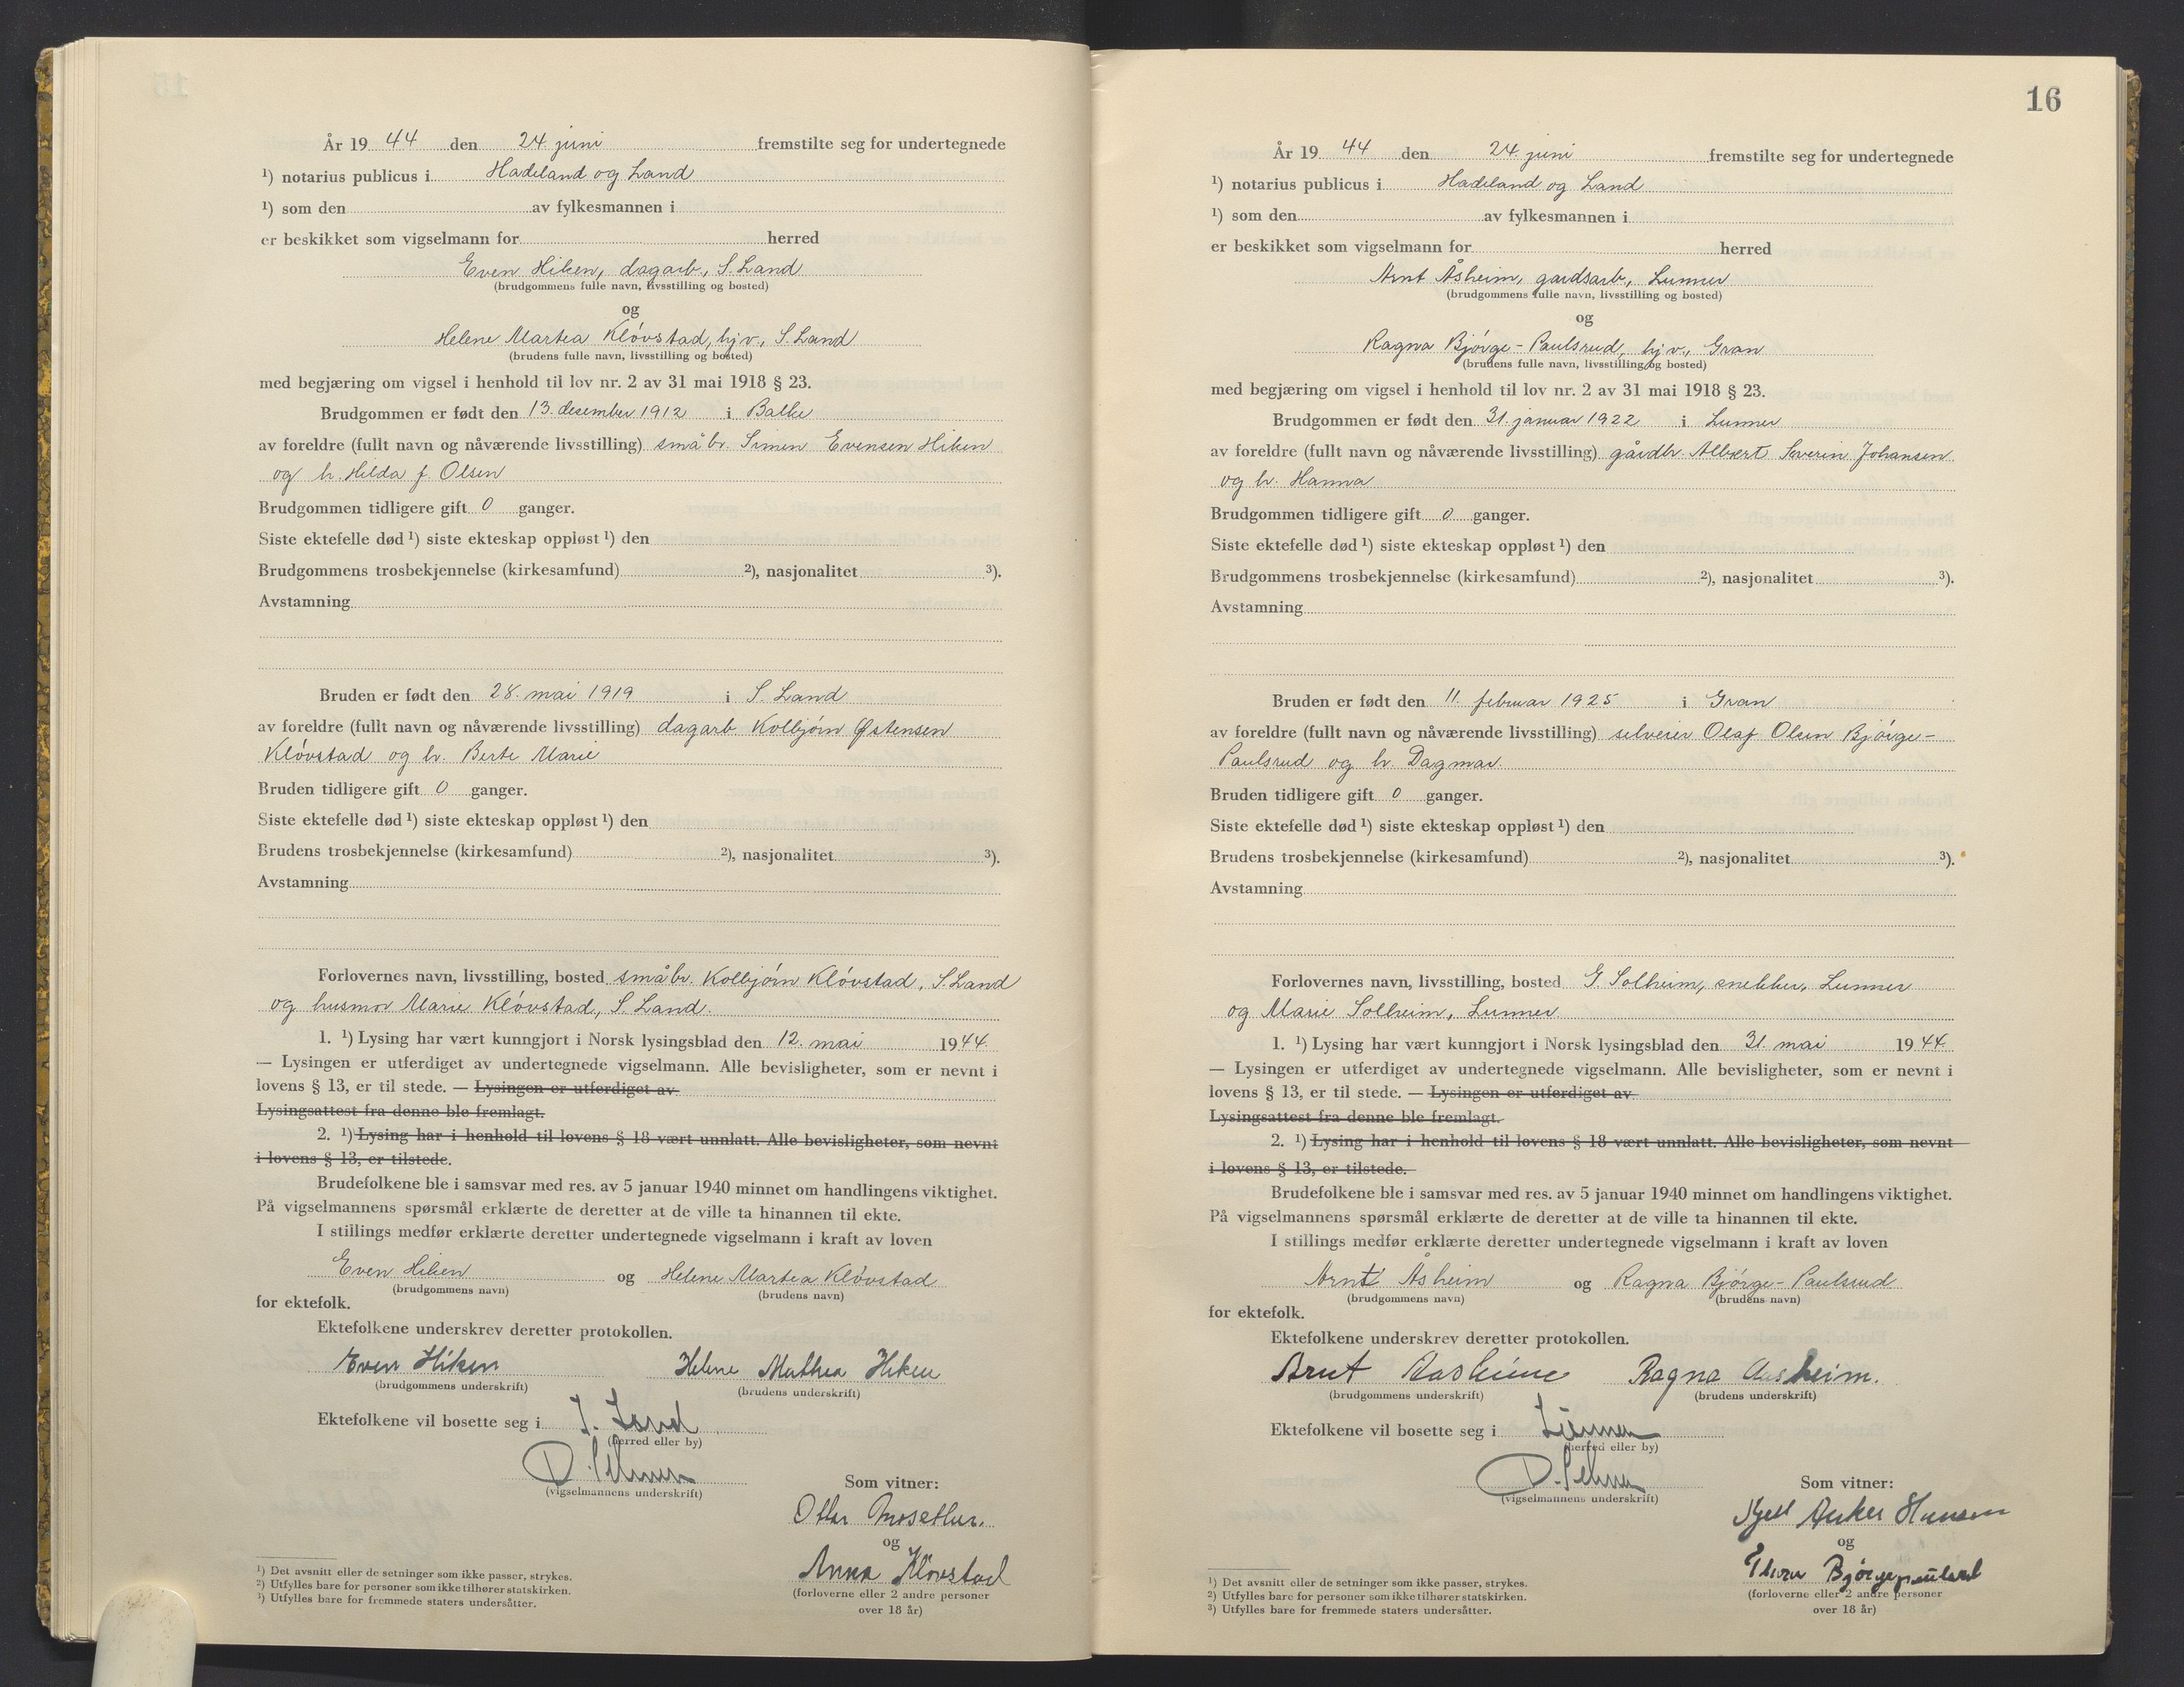 År 19 44 den 24. juni fremstilte seg for undertegnede
¹) notarius publicus i Hadeland og Land
¹) som den av fylkesmannen i
er beskikket som vigselmann for herred
Even Hiken, dagarb., S. Land
(brudgommens fulle navn, livsstilling og bosted)
og
Helene Martea Kløvstad, hjv., S. Land
(brudens fulle navn, livsstilling og bosted)
med begjæring om vigsel i henhold til lov nr. 2 av 31 mai 1918 § 23.
Brudgommen er født den 13. desember 1912 i Balke
av foreldre (fullt navn og nåværende livsstilling) småbr. Simen Evensen Hiken
og h. Hilda f. Olsen
Brudgommen tidligere gift 0 ganger.
Siste ektefelle død ¹) siste ekteskap oppløst ¹) den
Brudgommens trosbekjennelse (kirkesamfund) ²), nasjonalitet ³).
Avstamning
Bruden er født den 28. mai 1919 i S. Land
av foreldre (fullt navn og nåværende livsstilling) dagarb Kolbjørn Østensen
Kløvstad og h. Berte Marie
Bruden tidligere gift 0 ganger.
Siste ektefelle død ¹) siste ekteskap oppløst ¹) den
Brudens trosbekjennelse (kirkesamfund) ²), nasjonalitet ³).
Avstamning
Forlovernes navn, livsstilling, bosted småbr. Kolbjørn Kløvstad, S. Land
og husmor Marie Kløvstad, S. Land.
1. ¹) Lysing har vært kunngjort i Norsk lysingsblad den 12. mai 1944.
— Lysingen er utferdiget av undertegnede vigselmann. Alle bevisligheter, som er nevnt i
lovens § 13, er til stede. — Lysingen er utferdiget av
Lysingsattest fra denne ble fremlagt.
2. ¹) Lysing har i henhold til lovens § 18 vært unnlatt. Alle bevisligheter, som nevnt
i lovens § 13, er tilstede.
Brudefolkene ble i samsvar med res. av 5 januar 1940 minnet om handlingens viktighet.
På vigselmannens spørsmål erklærte de deretter at de ville ta hinannen til ekte.
I stillings medfør erklærte deretter undertegnede vigselmann i kraft av loven
Even Hiken og Helene Martea Kløvstad
(brudgommens navn) (brudens navn)
for ektefolk.
Ektefolkene underskrev deretter protokollen.
Even Hiken Helene Mathea Hiken
(brudgommens underskrift) (brudens underskrift)
Ektefolkene vil bosette seg i S. Land
(herred eller by)
(vigselmannens underskrift)
Som vitner:
og
Anna Kløvstad
(forloverne eller 2 andre personer
over 18 år)
¹) Det avsnitt eller de setninger som ikke passer, strykes.
²) Utfylles bare for personer som ikke tilhører statskirken.
³) Utfylles bare for fremmede staters undersåtter.
16
År 19 44 den 24. juni fremstilte seg for undertegnede
¹) notarius publicus i Hadeland og Land
¹) som den av fylkesmannen i
er beskikket som vigselmann for herred
Arnt Åsheim, gardsarb., Lunner
(brudgommens fulle navn, livsstilling og bosted)
og
Ragna Bjørge-Paulsrud, hjv., Gran
(brudens fulle navn, livsstilling og bosted)
med begjæring om vigsel i henhold til lov nr. 2 av 31 mai 1918 § 23.
Brudgommen er født den 31. januar 1922 i Lunner
av foreldre (fullt navn og nåværende livsstilling) gårdbr. Albert Severin Johansen
og h. Hanna
Brudgommen tidligere gift 0 ganger.
Siste ektefelle død ¹) siste ekteskap oppløst ¹) den
Brudgommens trosbekjennelse (kirkesamfund) ²), nasjonalitet ³).
Avstamning
Bruden er født den 11. februar 1925 i Gran
av foreldre (fullt navn og nåværende livsstilling) selveier Olaf Olsen Bjørge-
Paulsrud og h. Dagmar.
Bruden tidligere gift 0 ganger.
Siste ektefelle død ¹) siste ekteskap oppløst ¹) den
Brudens trosbekjennelse (kirkesamfund) ²), nasjonalitet ³).
Avstamning
Forlovernes navn, livsstilling, bosted G. Solheim, snekker, Lunner
og Marie Solheim, Lunner
1. ¹) Lysing har vært kunngjort i Norsk lysingsblad den 31. mai 1944.
— Lysingen er utferdiget av undertegnede vigselmann. Alle bevisligheter, som er nevnt i
lovens § 13, er til stede. — Lysingen er utferdiget av
Lysingsattest fra denne ble fremlagt.
2. ¹) Lysing har i henhold til lovens § 18 vært unnlatt. Alle bevisligheter, som nevnt
i lovens § 13, er tilstede.
Brudefolkene ble i samsvar med res. av 5 januar 1940 minnet om handlingens viktighet.
På vigselmannens spørsmål erklærte de deretter at de ville ta hinannen til ekte.
I stillings medfør erklærte deretter undertegnede vigselmann i kraft av loven
Arnt Åsheim og Ragna Bjørge-Paulsrud
(brudgommens navn) (brudens navn)
for ektefolk.
Ektefolkene underskrev deretter protokollen.
Arnt Aasheim Ragna Aasheim.
(brudgommens underskrift) (brudens underskrift)
Ektefolkene vil bosette seg i Lunner
(herred eller by)
(vigselmannens underskrift)
Som vitner:
Kjell Anker Hansen
og
Bjørgepaulsrud
(forloverne eller 2 andre personer
over 18 år)
¹) Det avsnitt eller de setninger som ikke passer, strykes.
²) Utfylles bare for personer som ikke tilhører statskirken.
³) Utfylles bare for fremmede staters undersåtter.